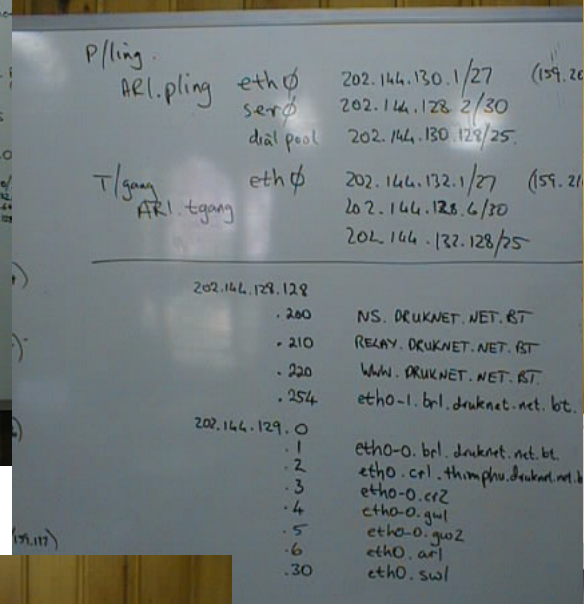 P/ling.
AR1.pling eth0 202.144.130.1/27 (159.20
ser0 202.144.128.2/30
dial pool 202.144.130.128/25.
T/gang eth0 202.144.132.1/27 (159.21
AR1.tgang 202.144.128.6/30
202.144.132.128/25
202.144.128.128
.200 NS.DRUKNET.NET.BT
.210 RELAY.DRUKNET.NET.BT
.220 WWW.DRUKNET.NET.BT.
.254 eth0-1.br1.druknet.net.bt.
202.144.129.0
.1 eth0-0.br1.druknet.net.bt.
.2 eth0.cr1.thimphu.druknet.net.b
.3 eth0-0.cr2
.4 eth0-0.gw1
.5 eth0-0.gw2
.6 eth0.ar1
.30 eth0.sw1